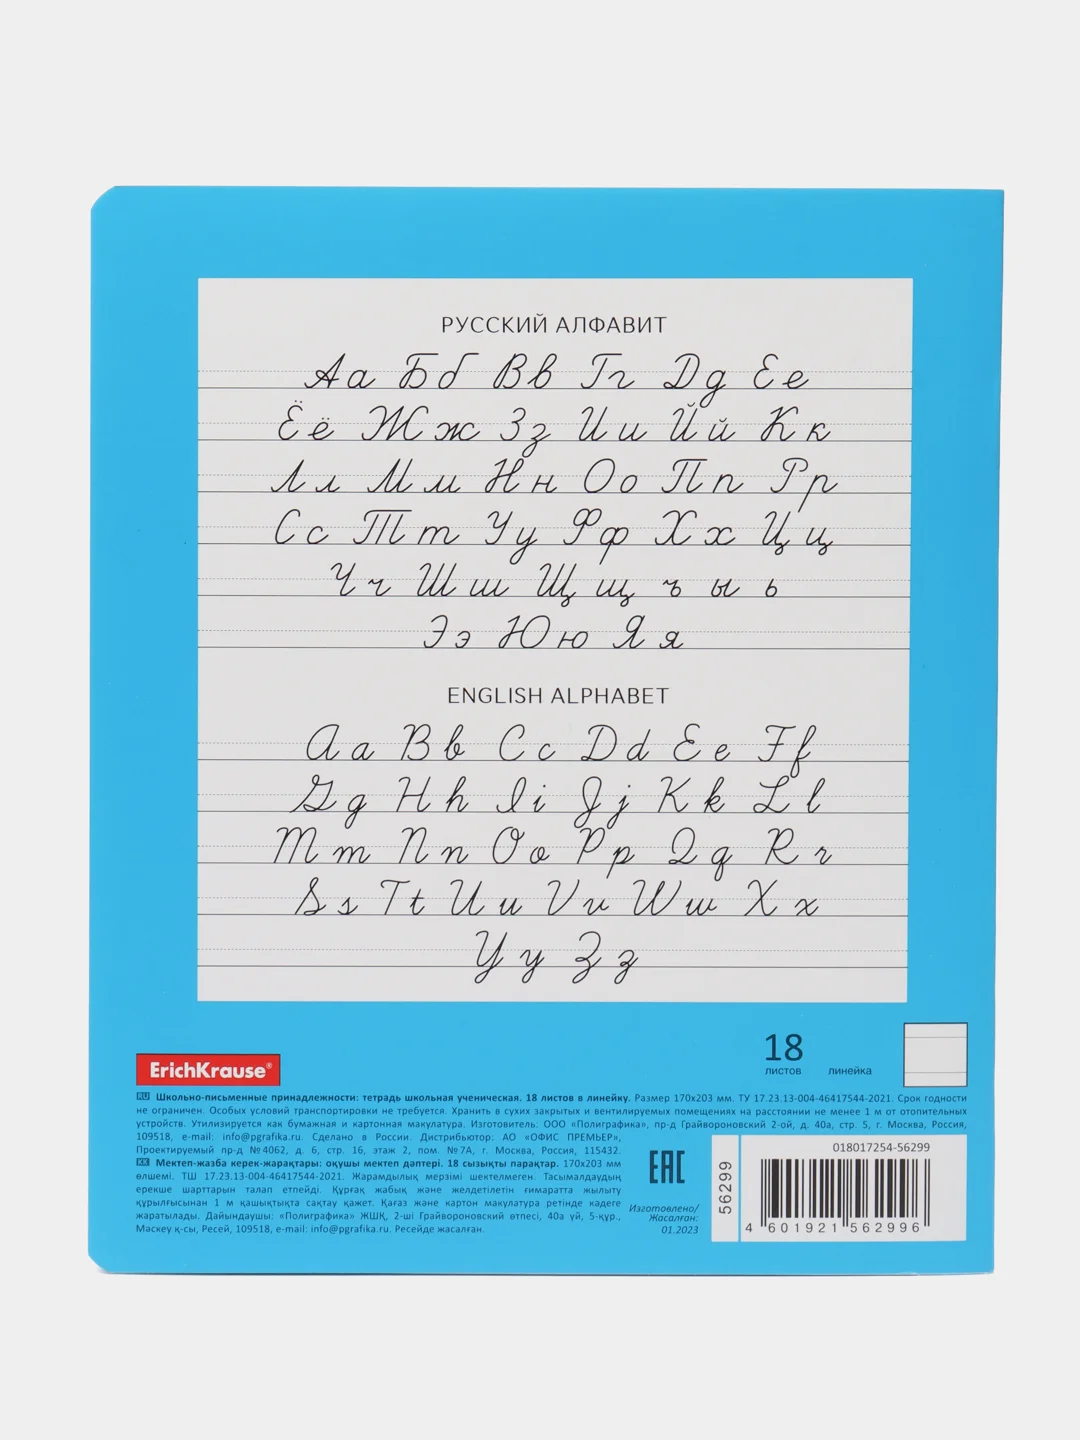 РУССКИЙ АЛФАВИТ
Аа Бб Вв Гг Дд Ее
Ёё Жж Зз Ии Йй Кк
Лл Мм Нн Оо Пп Рр
Сс Тт Уу Фф Хх Цц
Чч Шш Щщ ъ ы ь
Ээ Юю Яя
ENGLISH ALPHABET
Aa Bb Cc Dd Ee Ff
Gg Hh Ii Jj Kk Ll
Mm Nn Oo Pp Qq Rr
Ss Tt Uu Vv Ww Xx
Yy Zz
18
листов линейка
ErichKrause®
RU Школьно-письменные принадлежности: тетрадь школьная ученическая. 18 листов в линейку. Размер 170х203 мм. ТУ 17.23.13-004-46417544-2021. Срок годности
не ограничен. Особых условий транспортировки не требуется. Хранить в сухих закрытых и вентилируемых помещениях на расстоянии не менее 1 м от отопительных
устройств. Утилизируется как бумажная и картонная макулатура. Изготовитель: ООО «Полиграфика», пр-д Грайвороновский 2-ой, д. 40а, стр. 5, г. Москва, Россия,
109518, e-mail: info@pgrafika.ru. Сделано в России. Дистрибьютор: АО «ОФИС ПРЕМЬЕР»,
Проектируемый пр-д №4062, д. 6, стр. 16, этаж 2, пом. №7А, г. Москва, Россия, 115432.
KK Мектеп-жазба керек-жарақтары: оқушы мектеп дәптері. 18 сызықты парақтар. 170х203 мм
өлшемі. ТШ 17.23.13-004-46417544-2021. Жарамдылық мерзімі шектелмеген. Тасымалдаудың
ерекше шарттарын талап етпейді. Құрғақ жабық және желдетілетін ғимаратта жылыту
құрылғысынан 1 м қашықтықта сақтау қажет. Қағаз және картон макулатура ретінде кәдеге
жаратылады. Дайындаушы: «Полиграфика» ЖШҚ, 2-ші Грайвороновский өтпесі, 40а үй, 5-құр.,
Мәскеу қ-сы, Ресей, 109518, e-mail: info@pgrafika.ru. Ресейде жасалған.
EAC
Изготовлено/
Жасалған:
01.2023
56299
018017254-56299
4 601921 562996